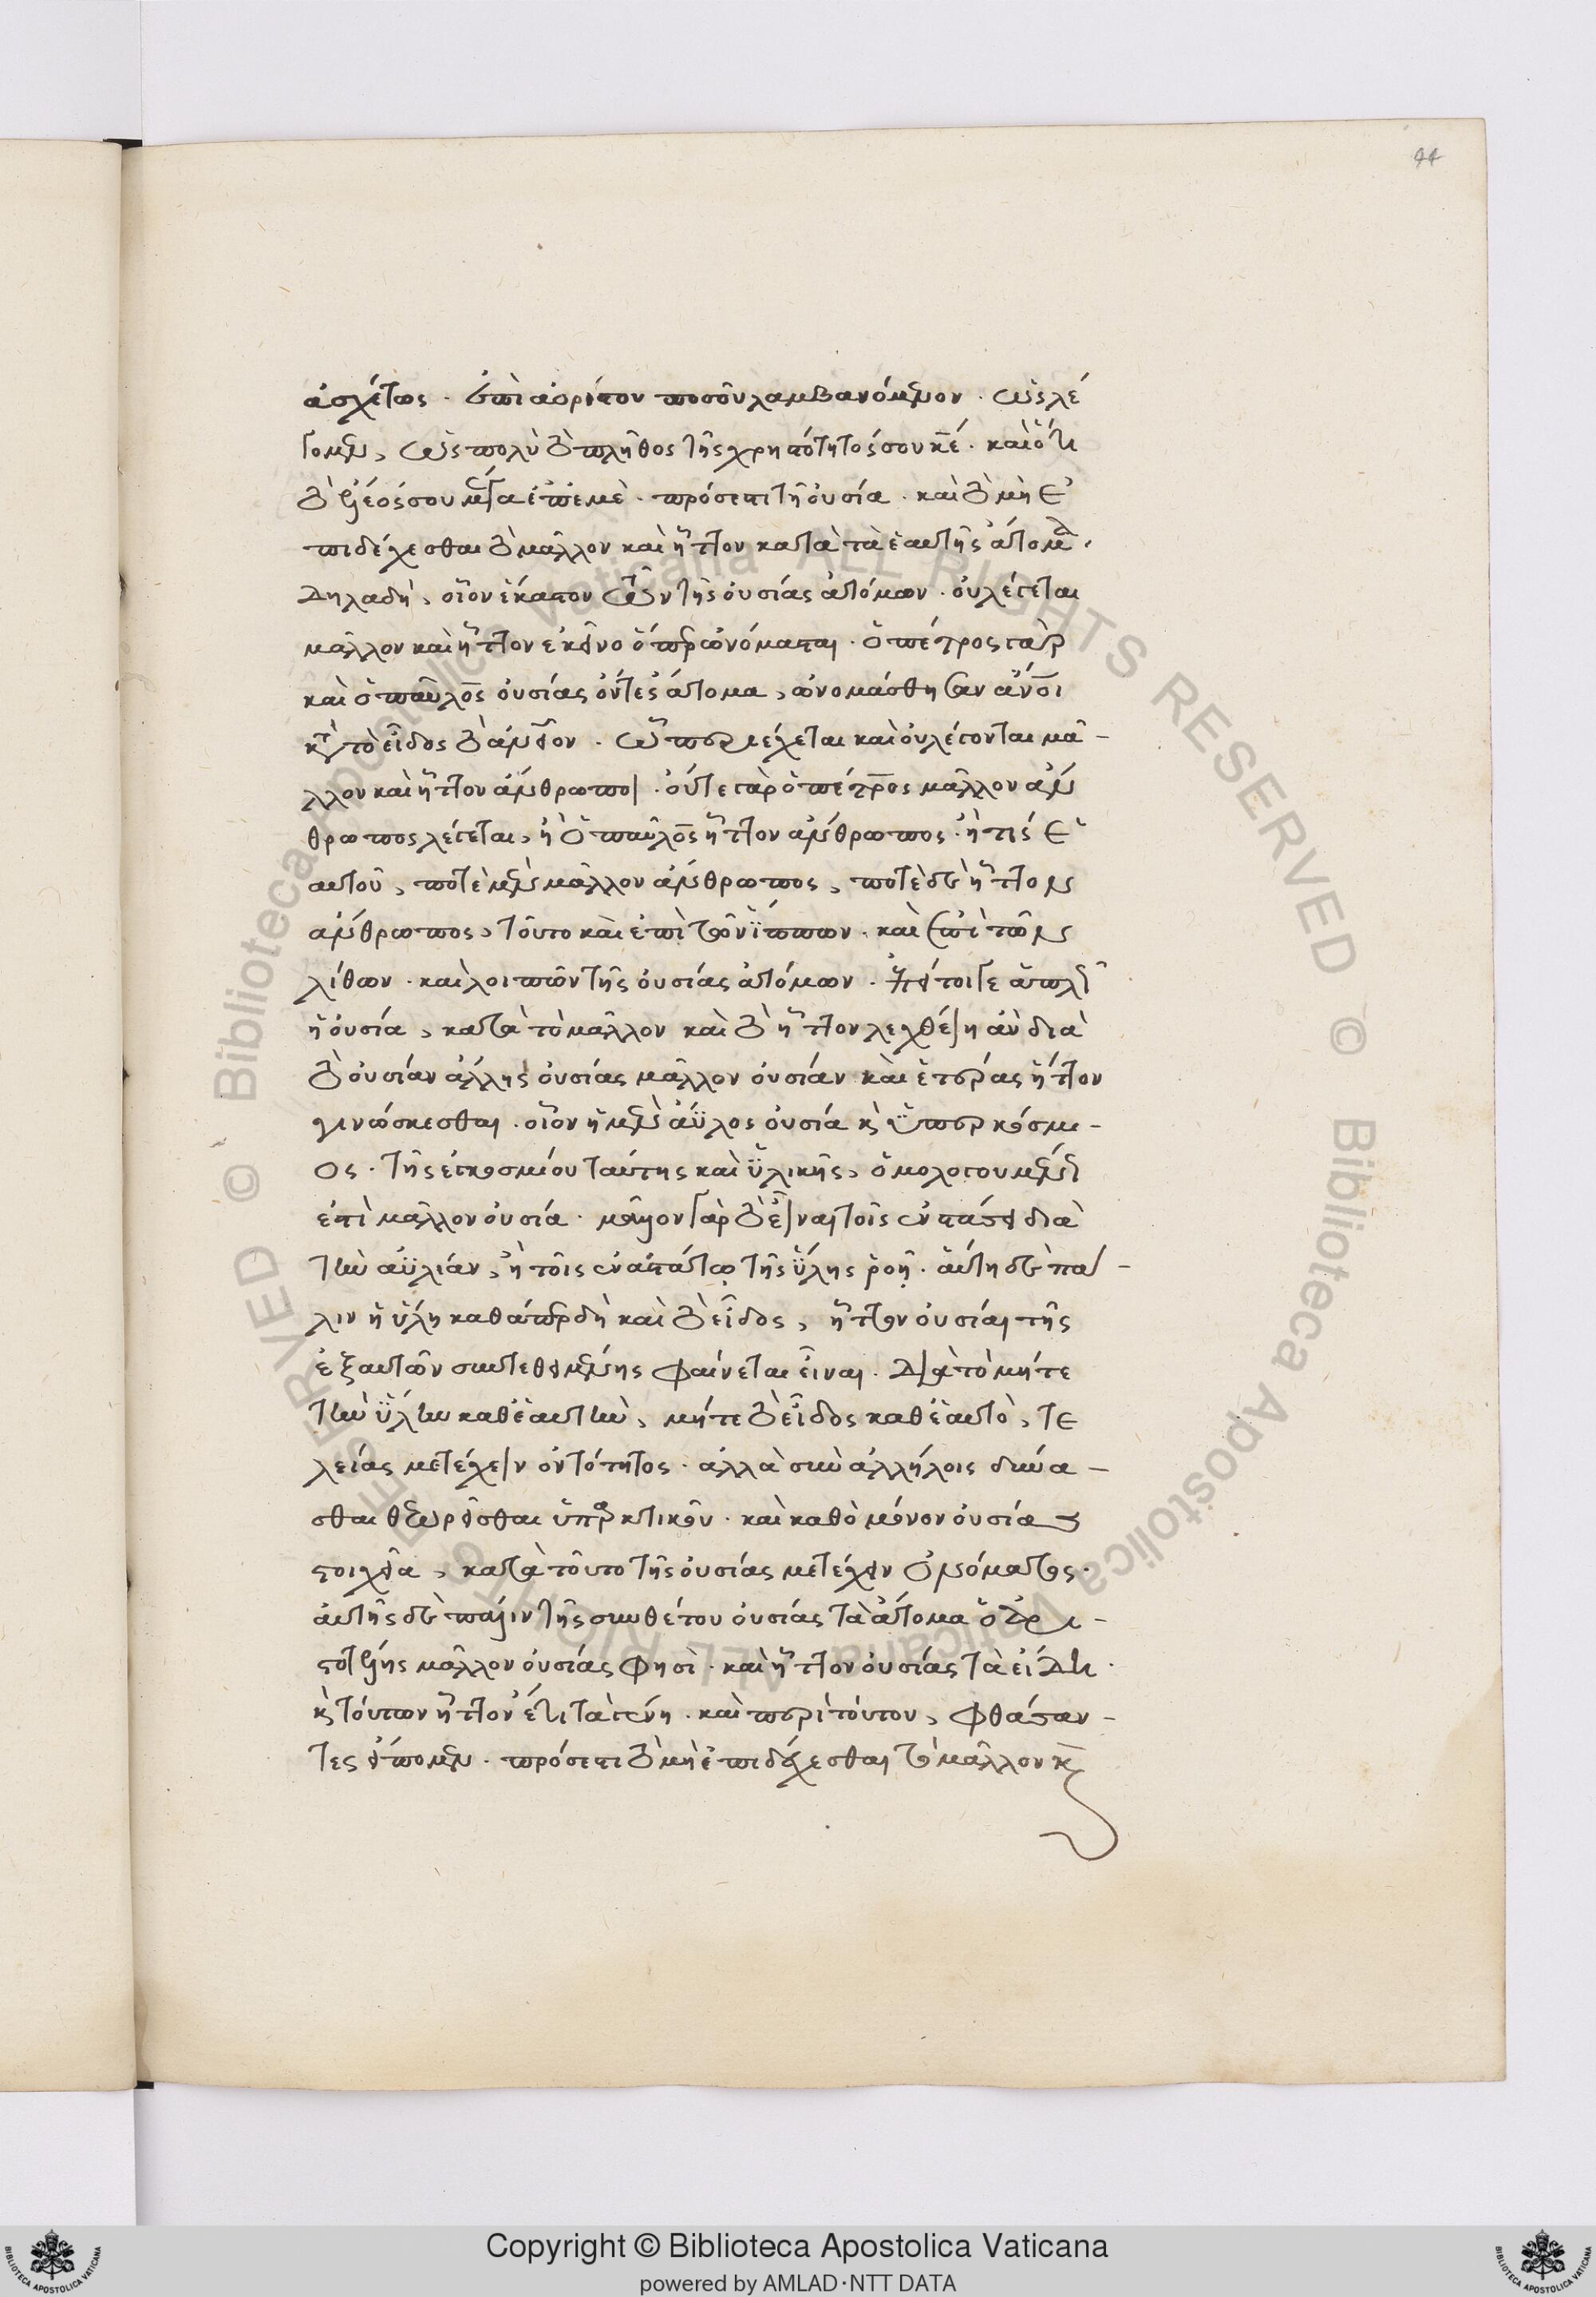 44
ἀσχέτως · ἐπὶ ἀορίστου ποσοῦ λαμβανόμενον · ὡς λέ
γομεν, ὡς πολὺ τὸ πλῆθος τῆς χρηστότητός σου κ̅ε̅ · καὶ ὅτι
τὸ ἔλεός σου μέγα ἐπ' ἐμὲ · πρόσεστι τῇ οὐσία · καὶ τὸ μὴ ἐ
πιδέχεσθαι τὸ μᾶλλον καὶ ἧττον κατὰ τὰ ἑαυτῆς ἄτομα ·
δηλαδὴ, οἷον ἕκαστον τῶν τῆς οὐσίας ἀτόμων · οὐ λέγεται
μᾶλλον καὶ ἧττον ἐκεῖνο ὅπερ ὠνόμασται · ὁ πέτρος γὰρ
καὶ ὁ παῦλος οὐσίας ὄντες ἄτομα, ὠνομάσθησαν ἄνοι
κατὰ τὸ εἶδος τὸ ἀμφοῖν · ὧπερ μετέχεται καὶ οὐ λέγονται μᾶ-
λλον καὶ ἧττον ἄνθρωποι · οὔτε γὰρ ὁ πέτρος μᾶλλον ἄν
θρωπος λέγεται, ἢ ὁ παῦλος ἧττον ἄνθρωπος · ἤ τις ἑ
αυτοῦ, ποτὲ μὲν μᾶλλον ἄνθρωπος, ποτὲ δὲ ἧττον
ἄνθρωπος, τοῦτο καὶ ἐπὶ τῶν ἵππων · καὶ ἐπὶ τῶν
λίθων · καὶ λοιπῶν τῆς οὐσίας ἀτόμων · ἐπεί τοι γε ἁπλῶς
ἡ οὐσία, κατὰ τὸ μᾶλλον καὶ τὸ ἧττον λεχθείη ἂν διὰ
τὸ οὐσίαν ἄλλης οὐσίας μᾶλλον οὐσίαν καὶ ἑτέρας ἧττον
γινώσκεσθαι · οἷον ἡ μὲν ἄϋλος οὐσία κ̀ ὑπερκόσμι-
ος · τῆς ἐγκοσμίου ταύτης καὶ ὑλικῆς, ὁμολογουμένως
ἐστὶ μᾶλλον οὐσία · μᾶλλον γὰρ τὸ εἶναι τοῖς ἐν στάσει διὰ
τὴν ἀϋλίαν, ἢ τοῖς ἐν ἀστάτῳ τῆς ὕλης ῥοῇ · αὕτη δὲ πά-
λιν ἡ ὕλη καθάπερ δὴ καὶ τὸ εἶδος, ἧττον οὐσίαι τῆς
ἐξ αὐτῶν συντεθειμένης φαίνεται εἶναι · διὰ τὸ μήτε
τὴν ὕλην καθ' ἑαυτὴν, μήτε τὸ εἶδος καθ' ἑαυτὸ, τε
λείας μετέχειν ὀντότητος · ἀλλὰ σὺν ἀλλήλοις δύνα-
σθαι θεωρεῖσθαι ὑπαρκτικοῦ · καὶ καθὸ μόνον οὐσίας
στοιχεῖα, κατὰ τοῦτο τῆς οὐσίας μετέχειν ὀνόματος ·
αὐτῆς δὲ πάλιν τῆς συνθέτου οὐσίας τὰ ἄτομα ὁ ἀρι-
στοτέλης μᾶλλον οὐσίας φησὶ · καὶ ἧττον οὐσίας τὰ εἴδη ·
κ̀ τούτων ἧττον ἔτι τὰ γένη · καὶ περὶ τούτου, φθάσαν-
τες εἴπομεν · πρόσεστι τὸ μὴ ἐπιδέχεσθαι τὸ μᾶλλον κ̀
Copyright © Biblioteca Apostolica Vaticana
powered by AMLAD·NTT DATA